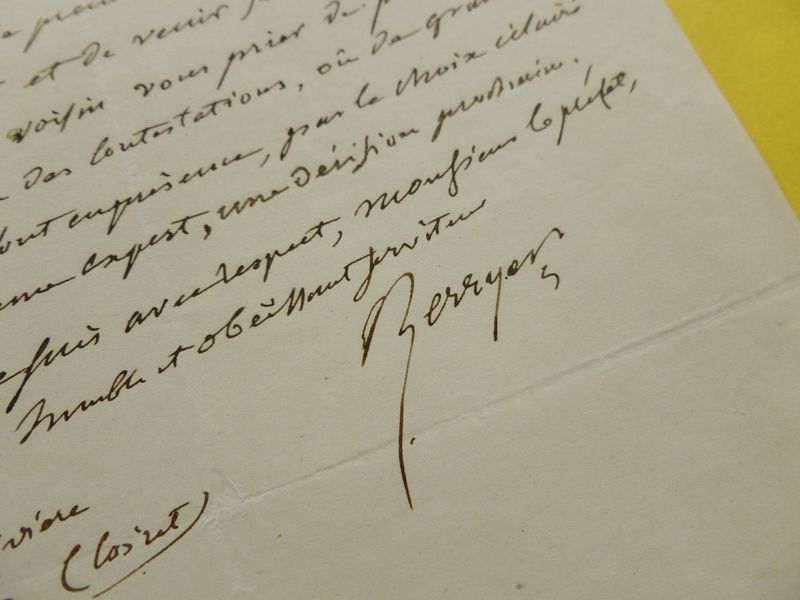 et de venir
voisin vous prier de
des contestations, où de
sont en présence, par le choix éclairé
expert, une décision prochaine.
suis avec respect, monsieur le préfet,
humble et obéissant serviteur
Berryer
(Loiret)